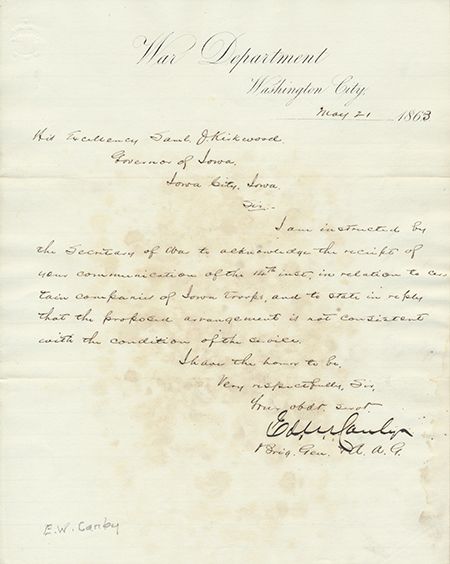 War Department
Washington City,
May 21 1863
His Excellency Saml. J. Kirkwood.
Governor of Iowa.
Iowa City, Iowa.
Sir.
I am instructed by
the Secretary of War to acknowledge the receipt of
your communication of the 14th inst, in relation to cer
tain companies of Iowa troops, and to state in reply
that the proposed arrangement is not consistent
with the condition of the service.
I have the honor to be,
Very respectfully, Sir,
Your obdt. servt.
Ed. Canby
Brig. Gen. A. A. G.
E. W. Canby